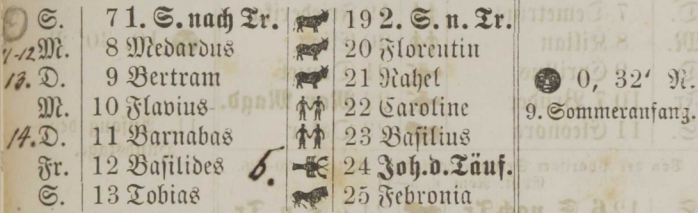 S. 7 1. S. nach Tr. 19 2. S. n. Tr.
7-12. M. 8 Medardus 20 Florentin
13. D. 9 Bertram 21 Rahel 0, 32' N.
M. 10 Flavius 22 Caroline 9. Sommeranfang.
14. D. 11 Barnabas 23 Basilius
Fr. 12 Basilides 6. 24 Joh. d. Täuf.
S. 13 Tobias 25 Febronia